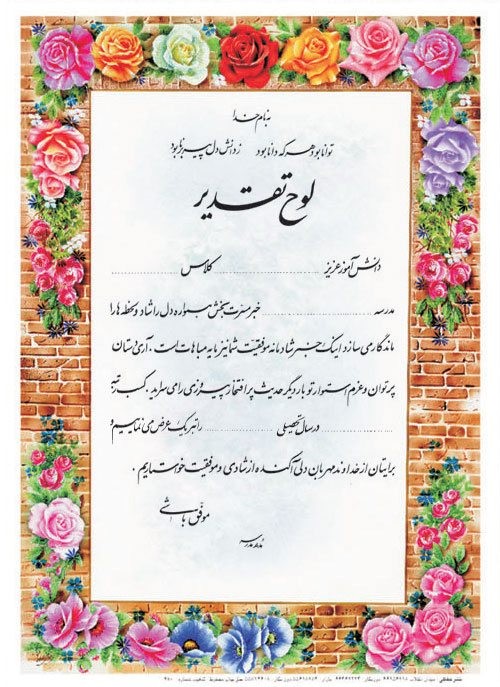 به نام خدا
توانا بود هر که دانا بود ز دانش دل پیر برنا بود
لوح تقدیر
دانش آموز عزیز .......................... کلاس ..........................
مدرسه .......................... خبر مسرت بخش همواره دل را شاد و لحظه ها را
ماندگار می سازد اینک خبر شادمانه موفقیت شما نیز مایه مباهات است . آری دستان
پر توان و عزم استوار تو بار دیگر حدیث پر افتخار پیروزی را می سراید . کسب رتبه
.......................... در سال تحصیلی .......................... را تبریک عرض می نماییم و
برایتان از خداوند مهربان دلی آکنده از شادی و موفقیت خواستاریم .
موفق باشی
مدیر مدرسه